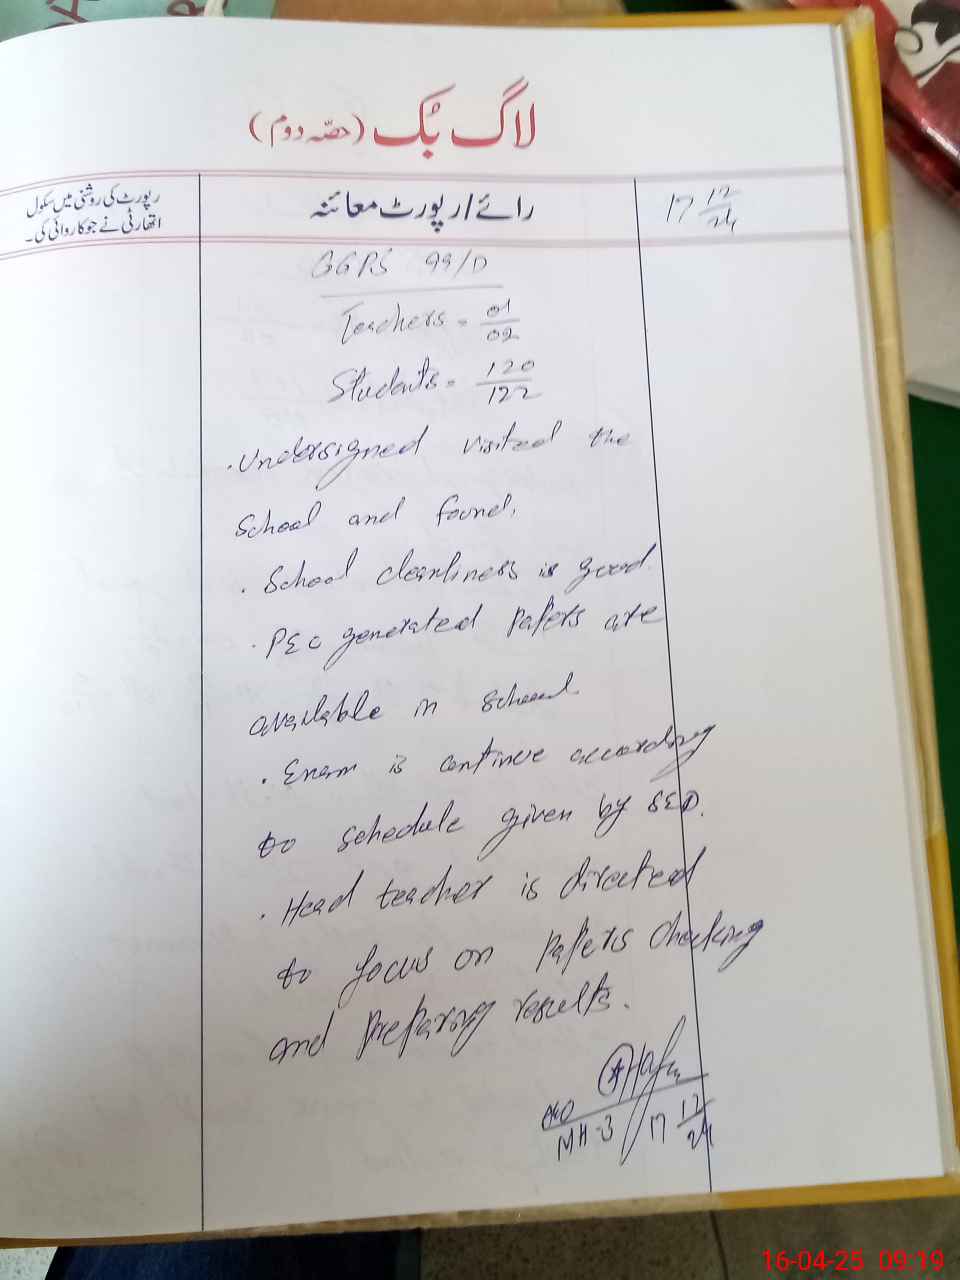 لاگ بک (حصّہ دوم)
رپورٹ کی روشنی میں سکول
اتھارٹی نے جو کاروائی کی۔
رائے/رپورٹ معائنہ
17 12/24
GGPS 99/D
Teachers = 01/02
Students = 120/122
. Undersigned visited the
School and found,
. School cleanliness is good.
. PEC generated Papers are
available in school
. Exam is continue according
to schedule given by SED.
. Head teacher is directed
to focus on Papers Checking
and Preparing results.
MH-3 17 12/24
16-04-25 09:19